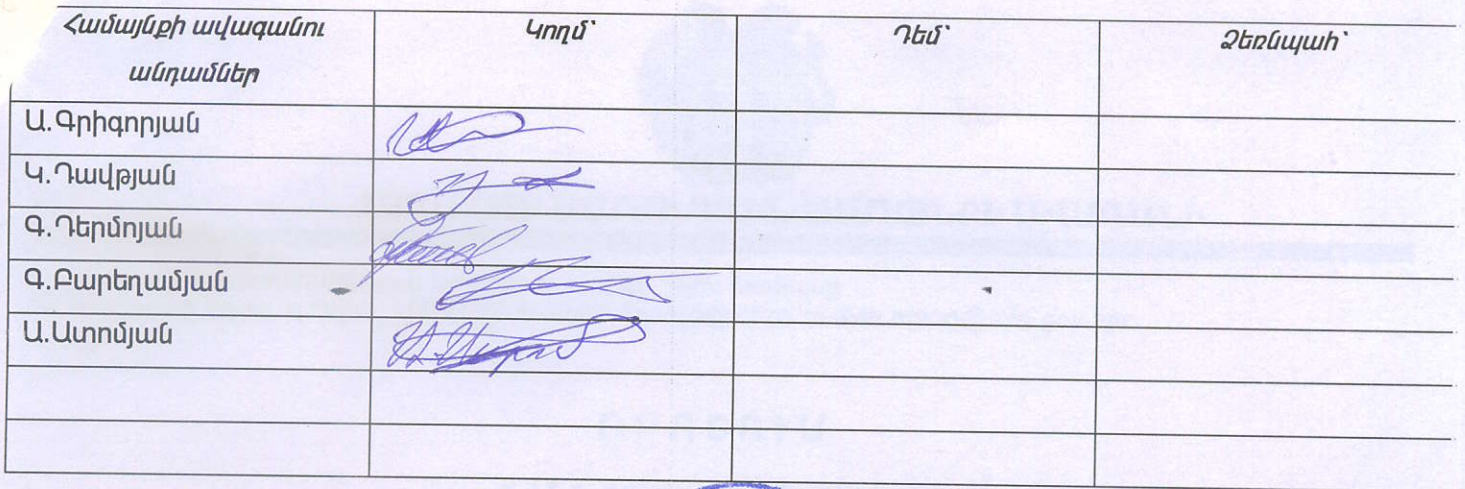 Համայնքի ավագանու
անդամներ
Կողմ՝
Դեմ՝
Ձեռնպահ՝
Ա.Գրիգորյան
Կ.Դավթյան
Գ.Դերմոյան
Գ.Բարեղամյան
Ա.Ատոմյան